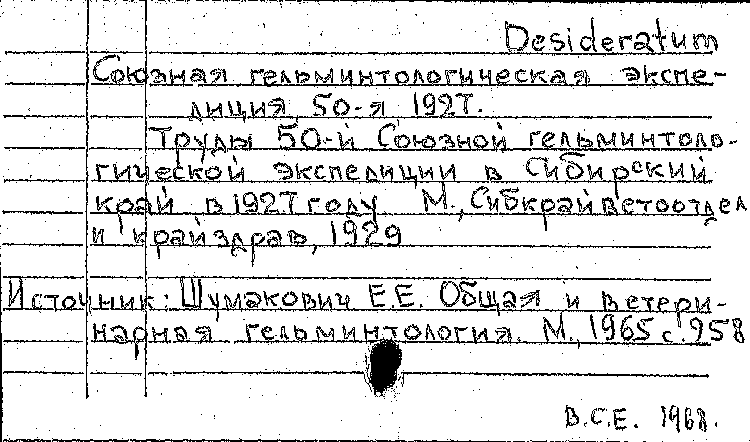 Desideratum
Союзная гельминтологическая экспе-
диция, 50-я, 1927.
Труды 50-й Союзной гельминтоло-
гической экспедиции в Сибирский
край в 1927 году. М., Сибкрайветоотдел
и крайздрав, 1929
Источник: Шумакович Е.Е. Общая и ветери-
нарная гельминтология. М., 1965 с. 958
В.С.Е. 1968.